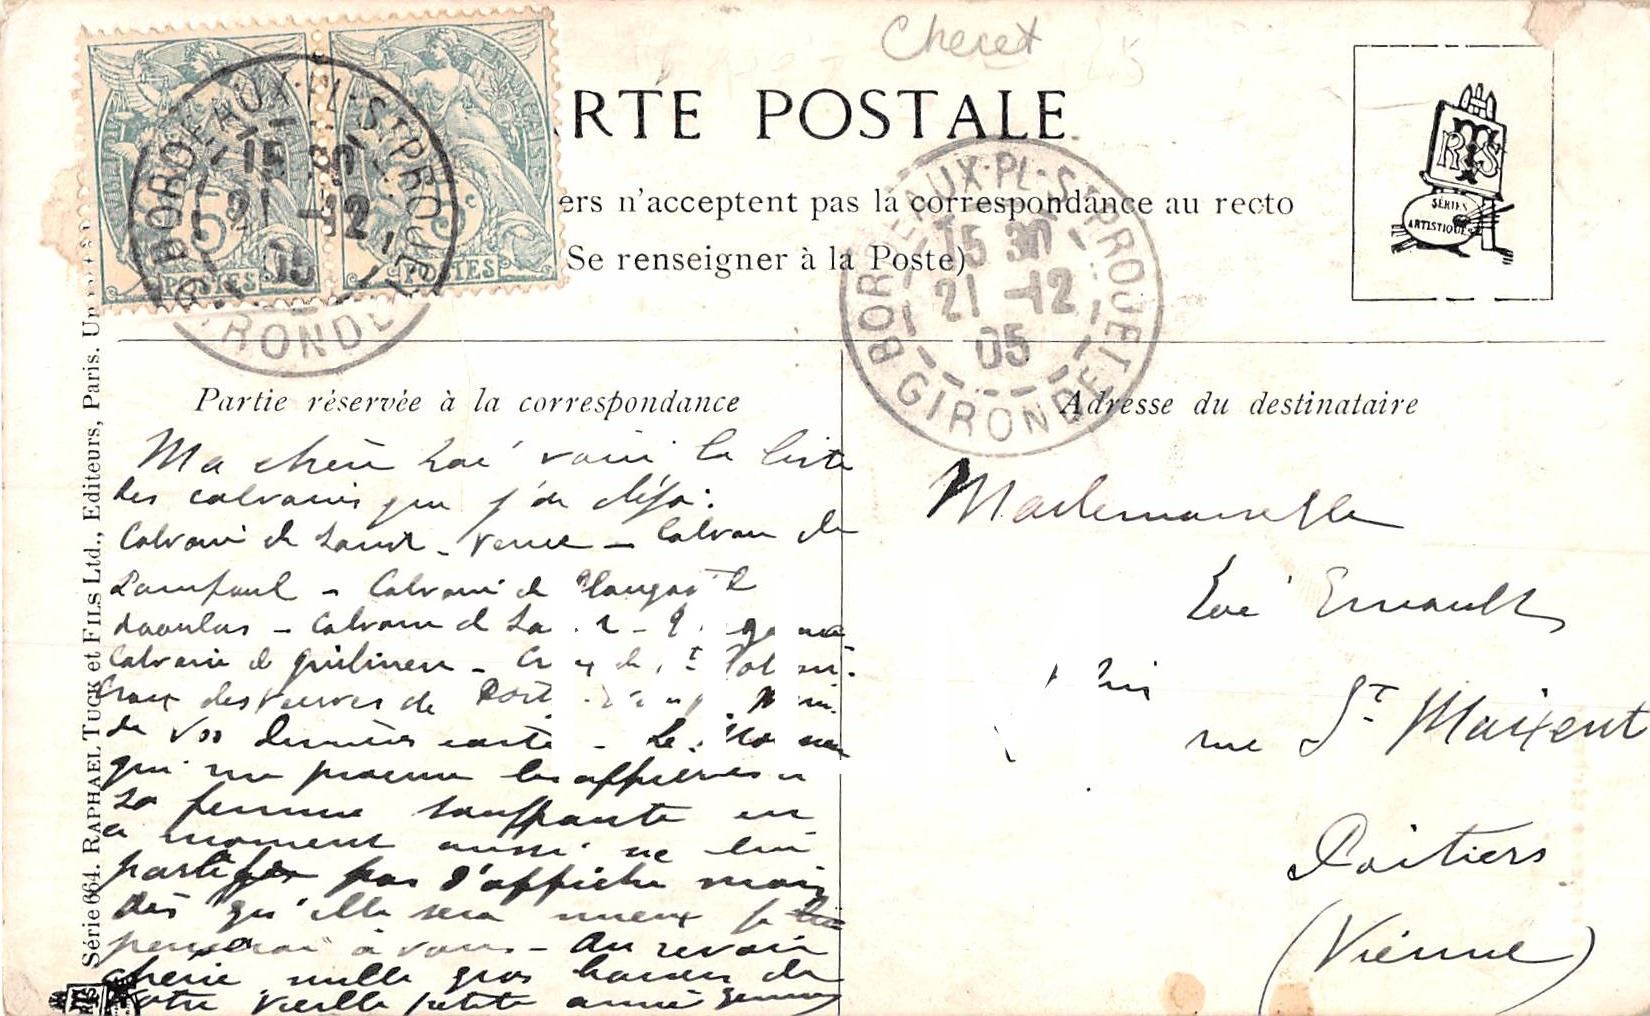 Cheret
RTE POSTALE
ers n'acceptent pas la correspondance au recto
Se renseigner à la Poste)
BORDEAUX·PL·ST PROJET
15 30
21 -12
05
GIRONDE
5c
POSTES
5c
POSTES
BORDEAUX·PL·ST PROJET
15 30
21 -12
05
GIRONDE
RTS
SÉRIES
ARTISTIQUES
Série 664. RAPHAEL TUCK et FILS Ltd., Editeurs, Paris.
Partie réservée à la correspondance
Ma chère Zoé voici la liste
des calvaires que j'ai déjà:
Calvaire de Saint-Venec - Calvaire de
Lampaul - Calvaire de
daoulas - Calvaire de
Calvaire de Quilinen -
Croix des veuves de
de vos dernières cartes -
qui me procure les affiches a
sa femme souffrante en
ce moment aussi ne lui
pas d'affiche mais
dès qu'elle sera mieux je
penserai à vous - Au revoir
chérie mille gros baisers de
votre vieille petite amie
Adresse du destinataire
Mademoiselle
Zoé Ernault
rue St Maixent
Poitiers
(Vienne)